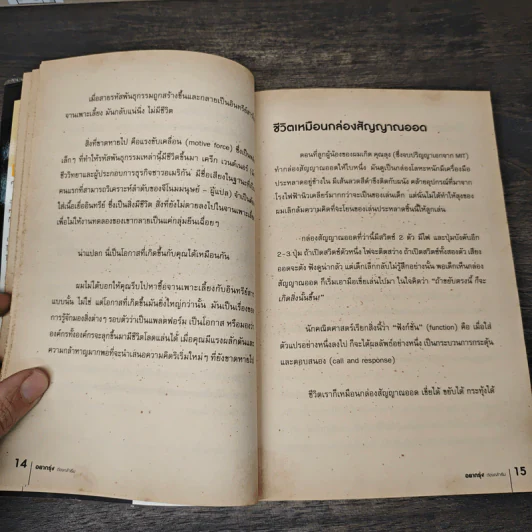 เมื่อสายรหัสพันธุกรรมถูกสร้างขึ้นและกลายเป็นอินทรีย์สาร
จานเพาะเลี้ยง มันกลับแน่นิ่ง ไม่มีชีวิต
สิ่งที่ขาดหายไป คือแรงขับเคลื่อน (motive force) ซึ่งเป็น
เล็กๆ ที่ทำให้รหัสพันธุกรรมเหล่านี้มีชีวิตขึ้นมา เคร็ก เวนเตอร์
ชีววิทยาและผู้ประกอบการธุรกิจชาวอเมริกัน มีชื่อเสียงในฐานะ
คนแรกที่สามารถวิเคราะห์ลำดับของจีโนมมนุษย์ – ผู้แปล) จำเป็น
ใส่เนื้อเยื่ออินทรีย์ ซึ่งเป็นสิ่งมีชีวิต สิ่งที่ยังไม่ตายลงไปในจานเพาะเลี้ยง
เพื่อไม่ให้งานทดลองของเขากลายเป็นแค่กลุ่มยีนเฉื่อยๆ
น่าแปลก นี่เป็นโอกาสที่เกิดขึ้นกับคุณได้เหมือนกัน
ผมไม่ได้บอกให้คุณรีบไปหาซื้อจานเพาะเลี้ยงกับอินทรีย์สาร
แบบนั้น ไม่ใช่ แต่โอกาสที่เกิดขึ้นมันยิ่งใหญ่กว่านั้น มันเป็นเรื่องของ
การรู้จักมองสิ่งต่างๆ รอบตัวว่าเป็นแพลตฟอร์ม เป็นโอกาส หรือมองว่า
องค์กรทั้งองค์กรจะลุกขึ้นมามีชีวิตโลดแล่นได้ เมื่อคุณมีแรงผลักดันและ
ความกล้าหาญมากพอที่จะนำเสนอความคิดริเริ่มใหม่ๆ ที่ยังขาดหายไป
14 อยากรุ่ง
ชีวิตเหมือนกล่องสัญญาณออด
ตอนที่ลูกผู้น้องของผมเกิด คุณลุง (ซึ่งจบปริญญาเอกจาก MIT)
ทำกล่องสัญญาณออดให้ใบหนึ่ง มันดูเป็นกล่องโลหะหนักมีเครื่องมือ
ประหลาดอยู่ข้างใน มีเส้นลวดสีดำขึงติดกับผนัง คล้ายอุปกรณ์ที่มาจาก
โรงไฟฟ้านิวเคลียร์มากกว่าจะเป็นของเล่นเด็ก แต่นั่นไม่ได้ทำให้ลุงของ
ผมเลิกล้มความคิดที่จะโยนของเล่นประหลาดชิ้นนี้ให้ลูกเล่น
กล่องสัญญาณออดที่ว่านี้มีสวิตช์ 2 ตัว มีไฟ และปุ่มบังคับอีก
2-3 ปุ่ม ถ้าเปิดสวิตช์ตัวหนึ่ง ไฟจะติดสว่าง ถ้าเปิดสวิตช์ทั้งสองตัว เสียง
ออดจะดัง ฟังดูน่ากลัว แต่เด็กเล็กกลับไม่รู้สึกอย่างนั้น พอเด็กเห็นกล่อง
สัญญาณออด ก็เริ่มเอามือเขี่ยเล่นไปมา ในใจคิดว่า "ถ้าขยับตรงนี้ ก็จะ
เกิดสิ่งนั้นขึ้น!"
นักคณิตศาสตร์เรียกสิ่งนี้ว่า "ฟังก์ชัน" (function) คือ เมื่อใส่
ตัวแปรอย่างหนึ่งลงไป ก็จะได้ผลลัพธ์อย่างหนึ่ง เป็นกระบวนการกระตุ้น
และตอบสนอง (call and response)
ชีวิตเราก็เหมือนกล่องสัญญาณออด เขี่ยได้ ขยับได้ กระทุ้งได้
อยากรุ่ง 15